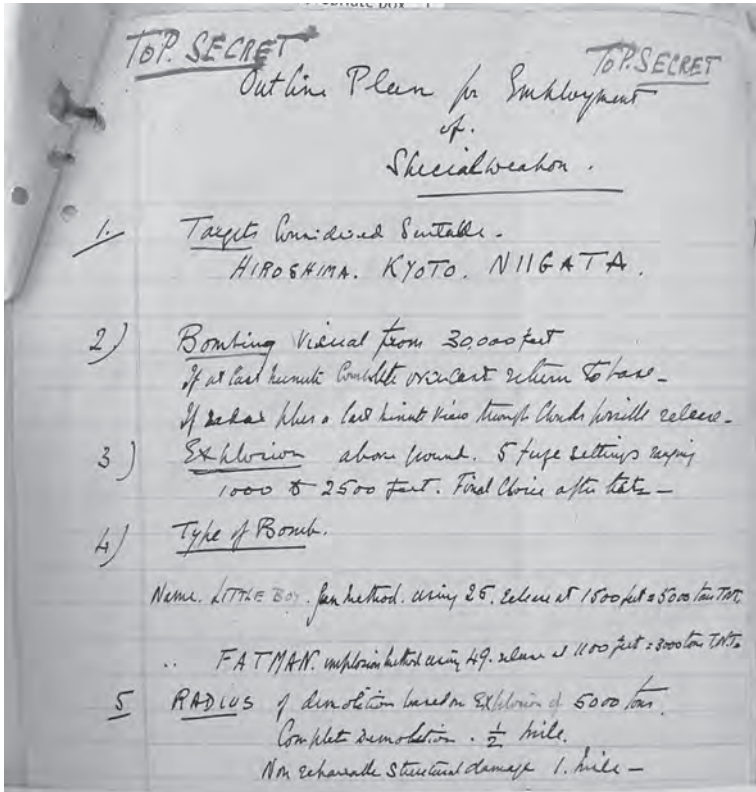 TOP. SECRET
TOP. SECRET
Outline Plan for Employment
of.
Special weapon.
1. Targets Considered Suitable.
HIROSHIMA. KYOTO. NIIGATA.
2) Bombing Visual from 30,000 feet
If at last minute Complete overcast return to base-
If radar plus a last minute view through Clouds possible release-
3) Explosion above ground. 5 fuze settings ranging
1000 to 2500 feet. Final Choice after tests-
4) Type of Bomb.
Name. LITTLE BOY. Gun method. using 25. release at 1500 feet = 5000 tons TNT
.. FATMAN. implosion method using 49. release at 1100 feet = 3000 tons T.N.T.
5 RADIUS of demolition based on Explosion of 5000 tons.
Complete Demolition. ½ mile.
Non repairable Structural damage 1. mile-